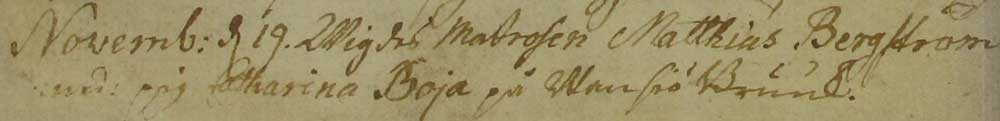 Novemb: d 19. Wigdes Matrosen Matthias Bergström
med pig Catharina Boja på Wansiö Bruuk.